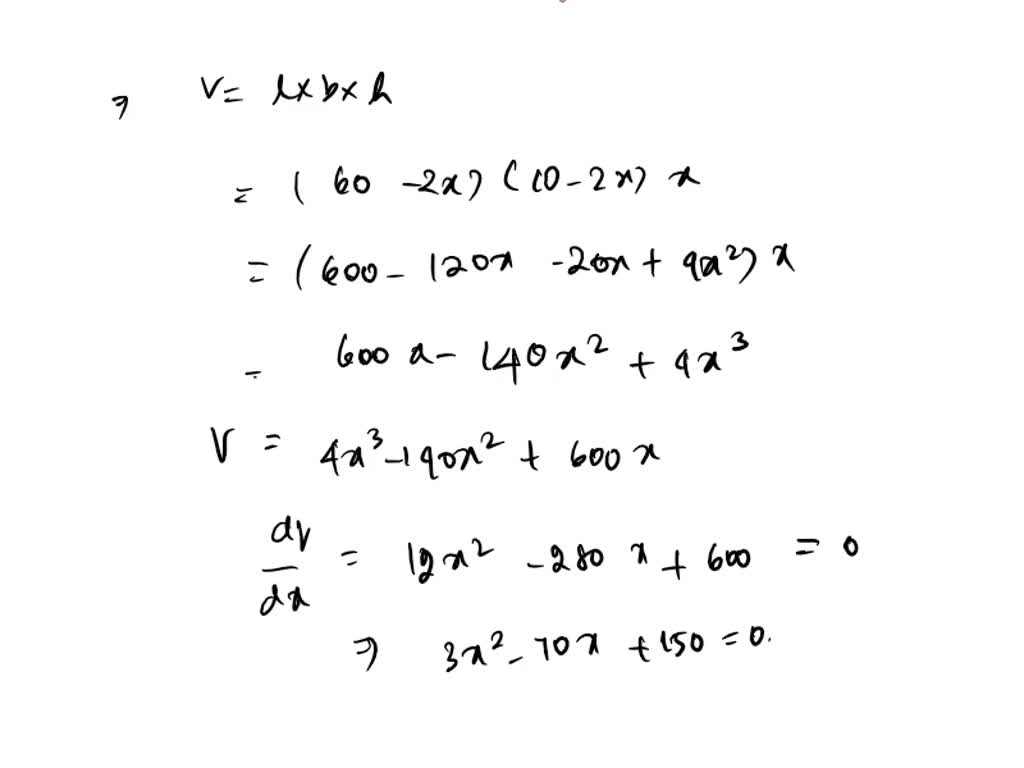 ⇒ V = l × b × h
= (60 - 2x) (10 - 2x) x
= (600 - 120x - 20x + 4x²) x
= 600x - 140x² + 4x³
V = 4x³ - 140x² + 600x
dV/dx = 12x² - 280x + 600 = 0
⇒ 3x² - 70x + 150 = 0.